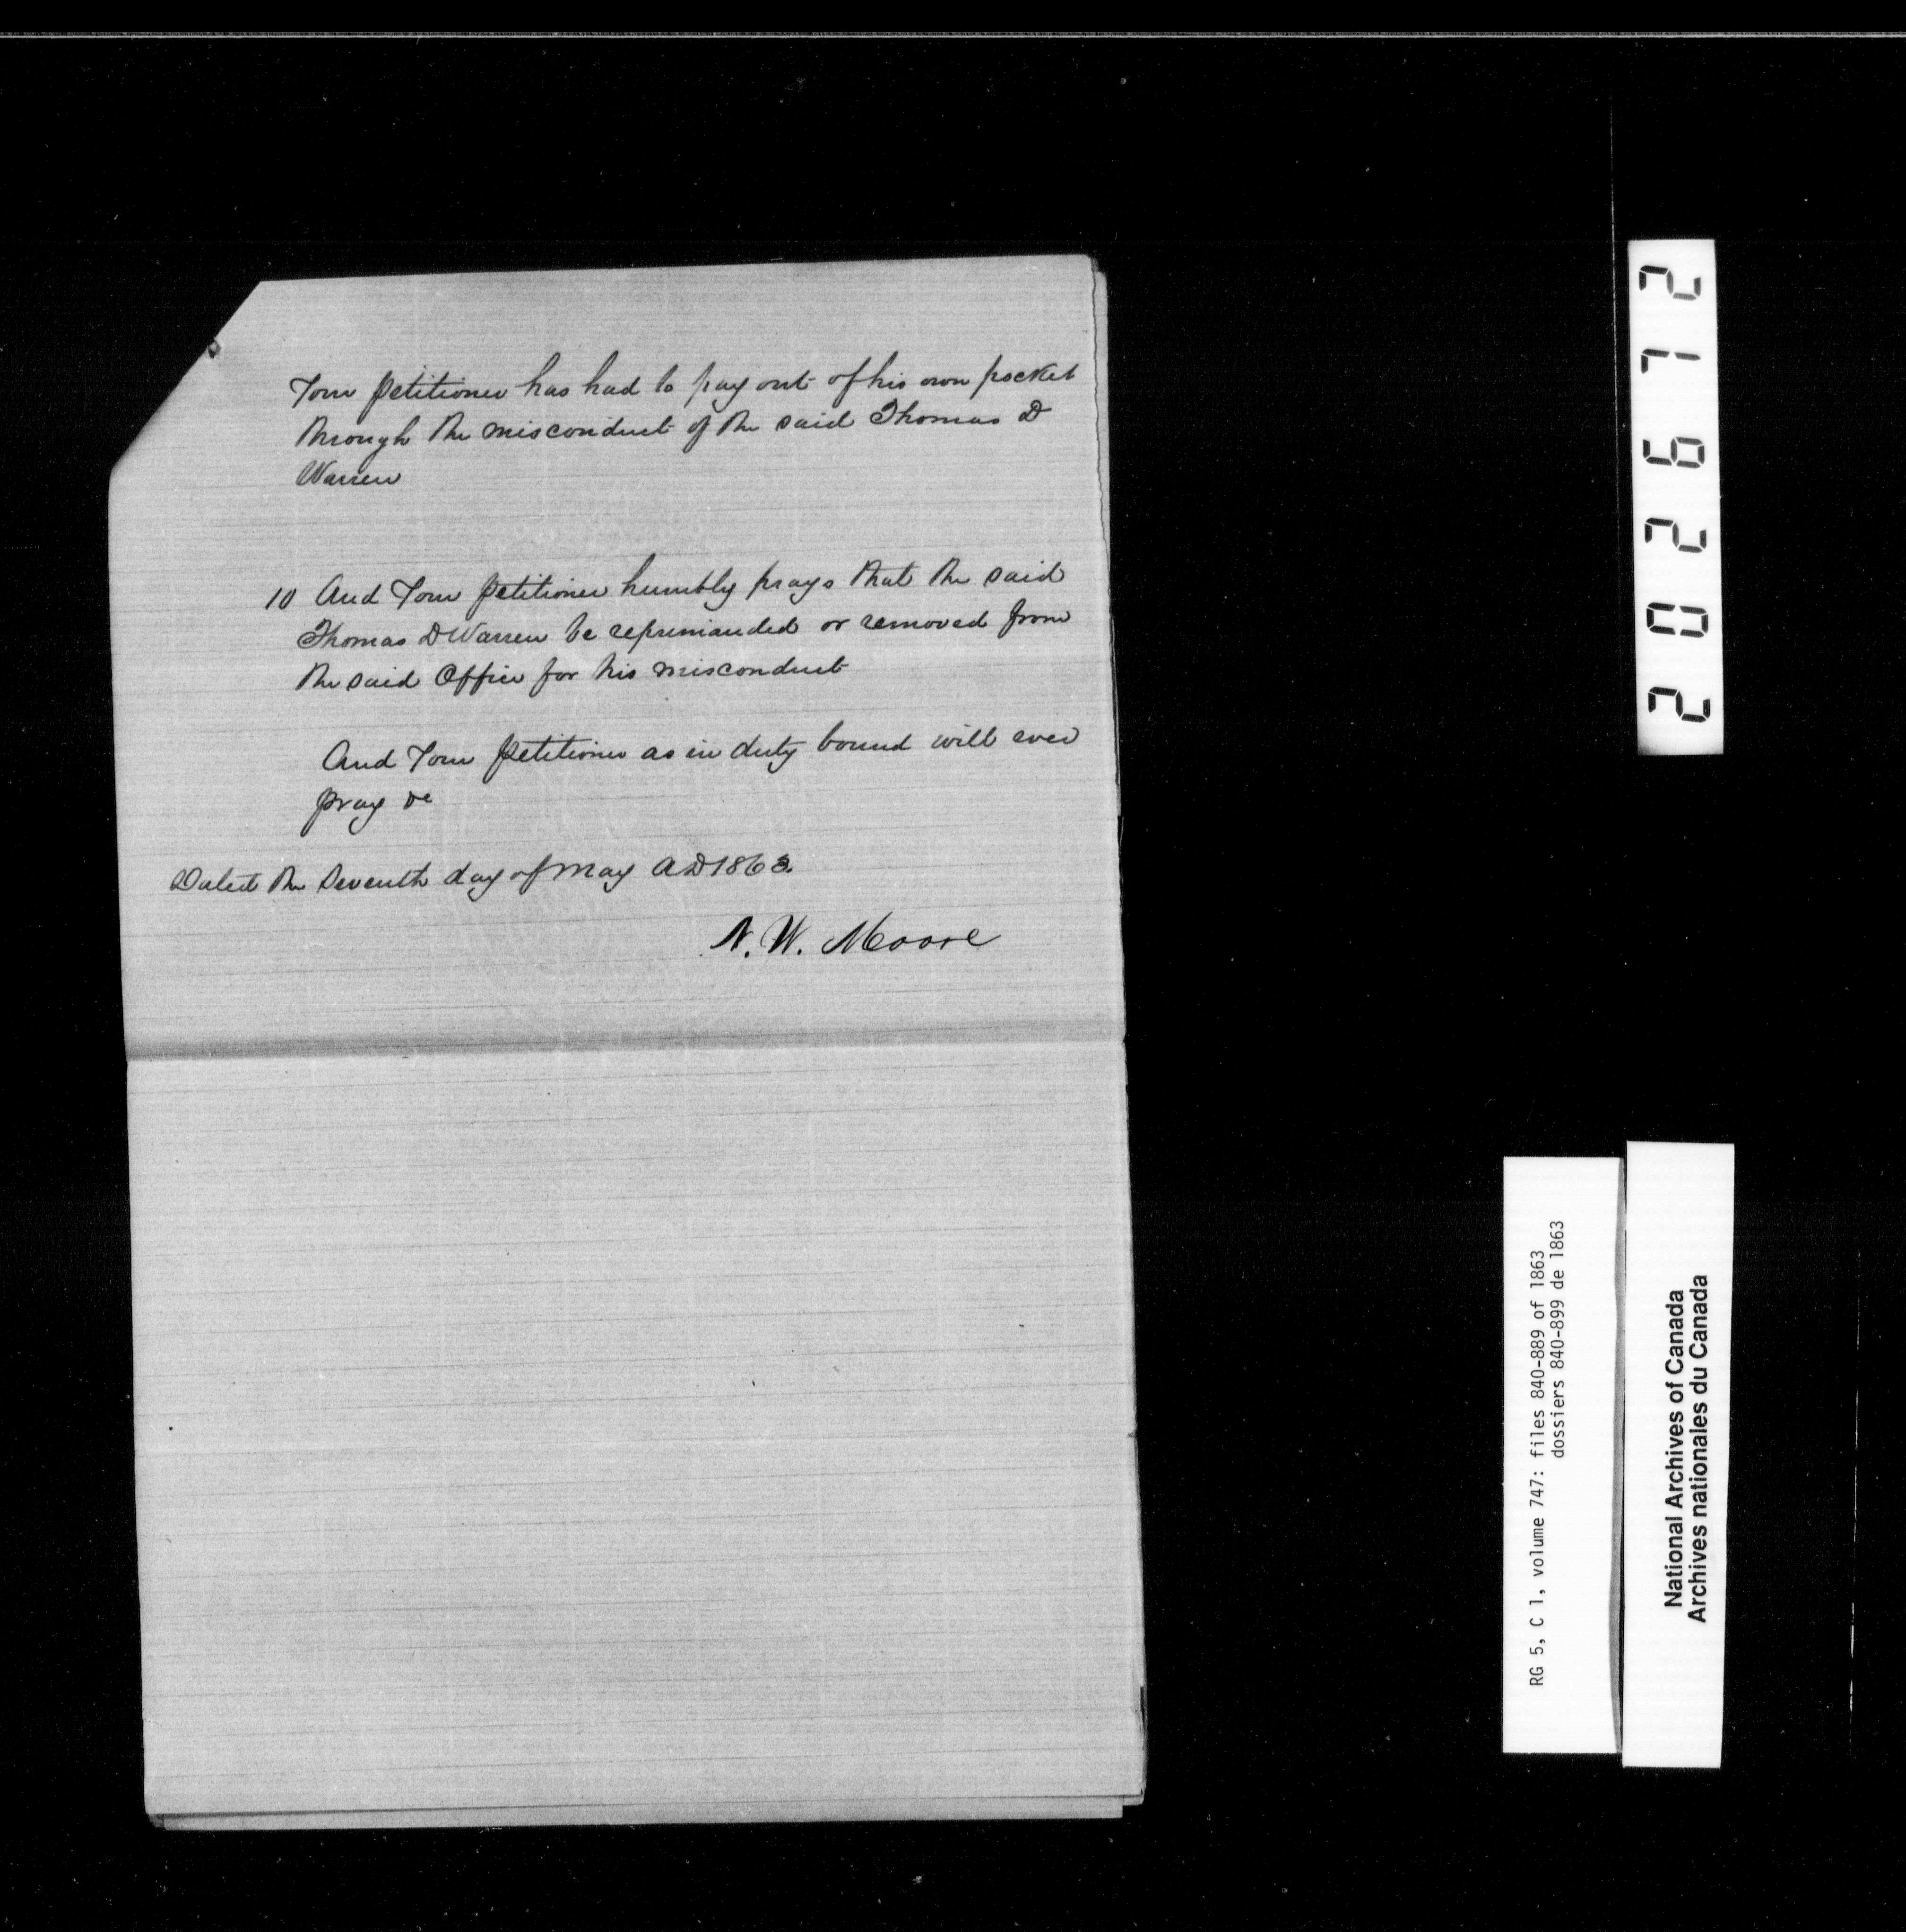 Your petitioner has had to pay out of his own pocket
through the misconduct of the said Thomas D
Warren
10 And Your petitioner humbly prays that the said
Thomas D Warren be reprimanded or removed from
the said Office for his misconduct
And Your petitioner as in duty bound will ever
pray &c
Dated the Seventh day of May AD 1863.
N. W. Moore
202672
RG 5, C 1, volume 747: files 840-889 of 1863
dossiers 840-899 de 1863
National Archives of Canada
Archives nationales du Canada